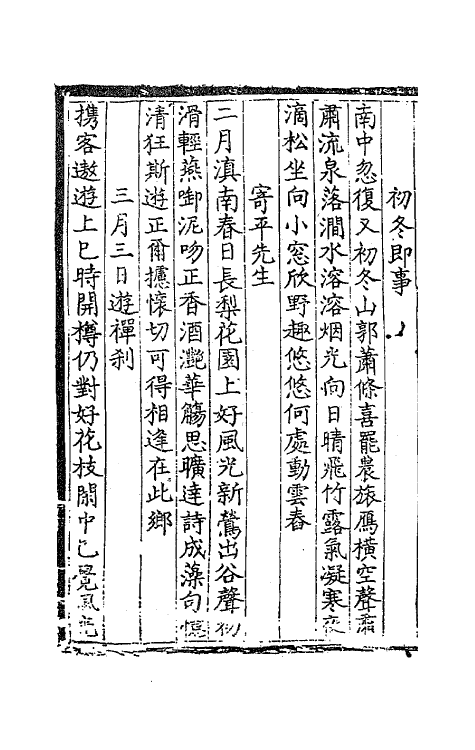 初冬即事
南中忽復又初冬山郭蕭條喜罷農旅鴈橫空聲肅
肅流泉落澗水溶溶烟光向日晴飛竹露氣凝寒夜
滴松坐向小窓欣野趣悠悠何處動雲舂
寄平先生
二月滇南春日長梨花園上好風光新鶯出谷聲初
滑輕燕啣泥吻正香酒灔華觴思曠達詩成藻句憶
清狂斯遊正爾攄懷切可得相逢在此鄉
三月三日遊禪刹
携客遨遊上巳時開樽仍對好花枝閙中已覺風光